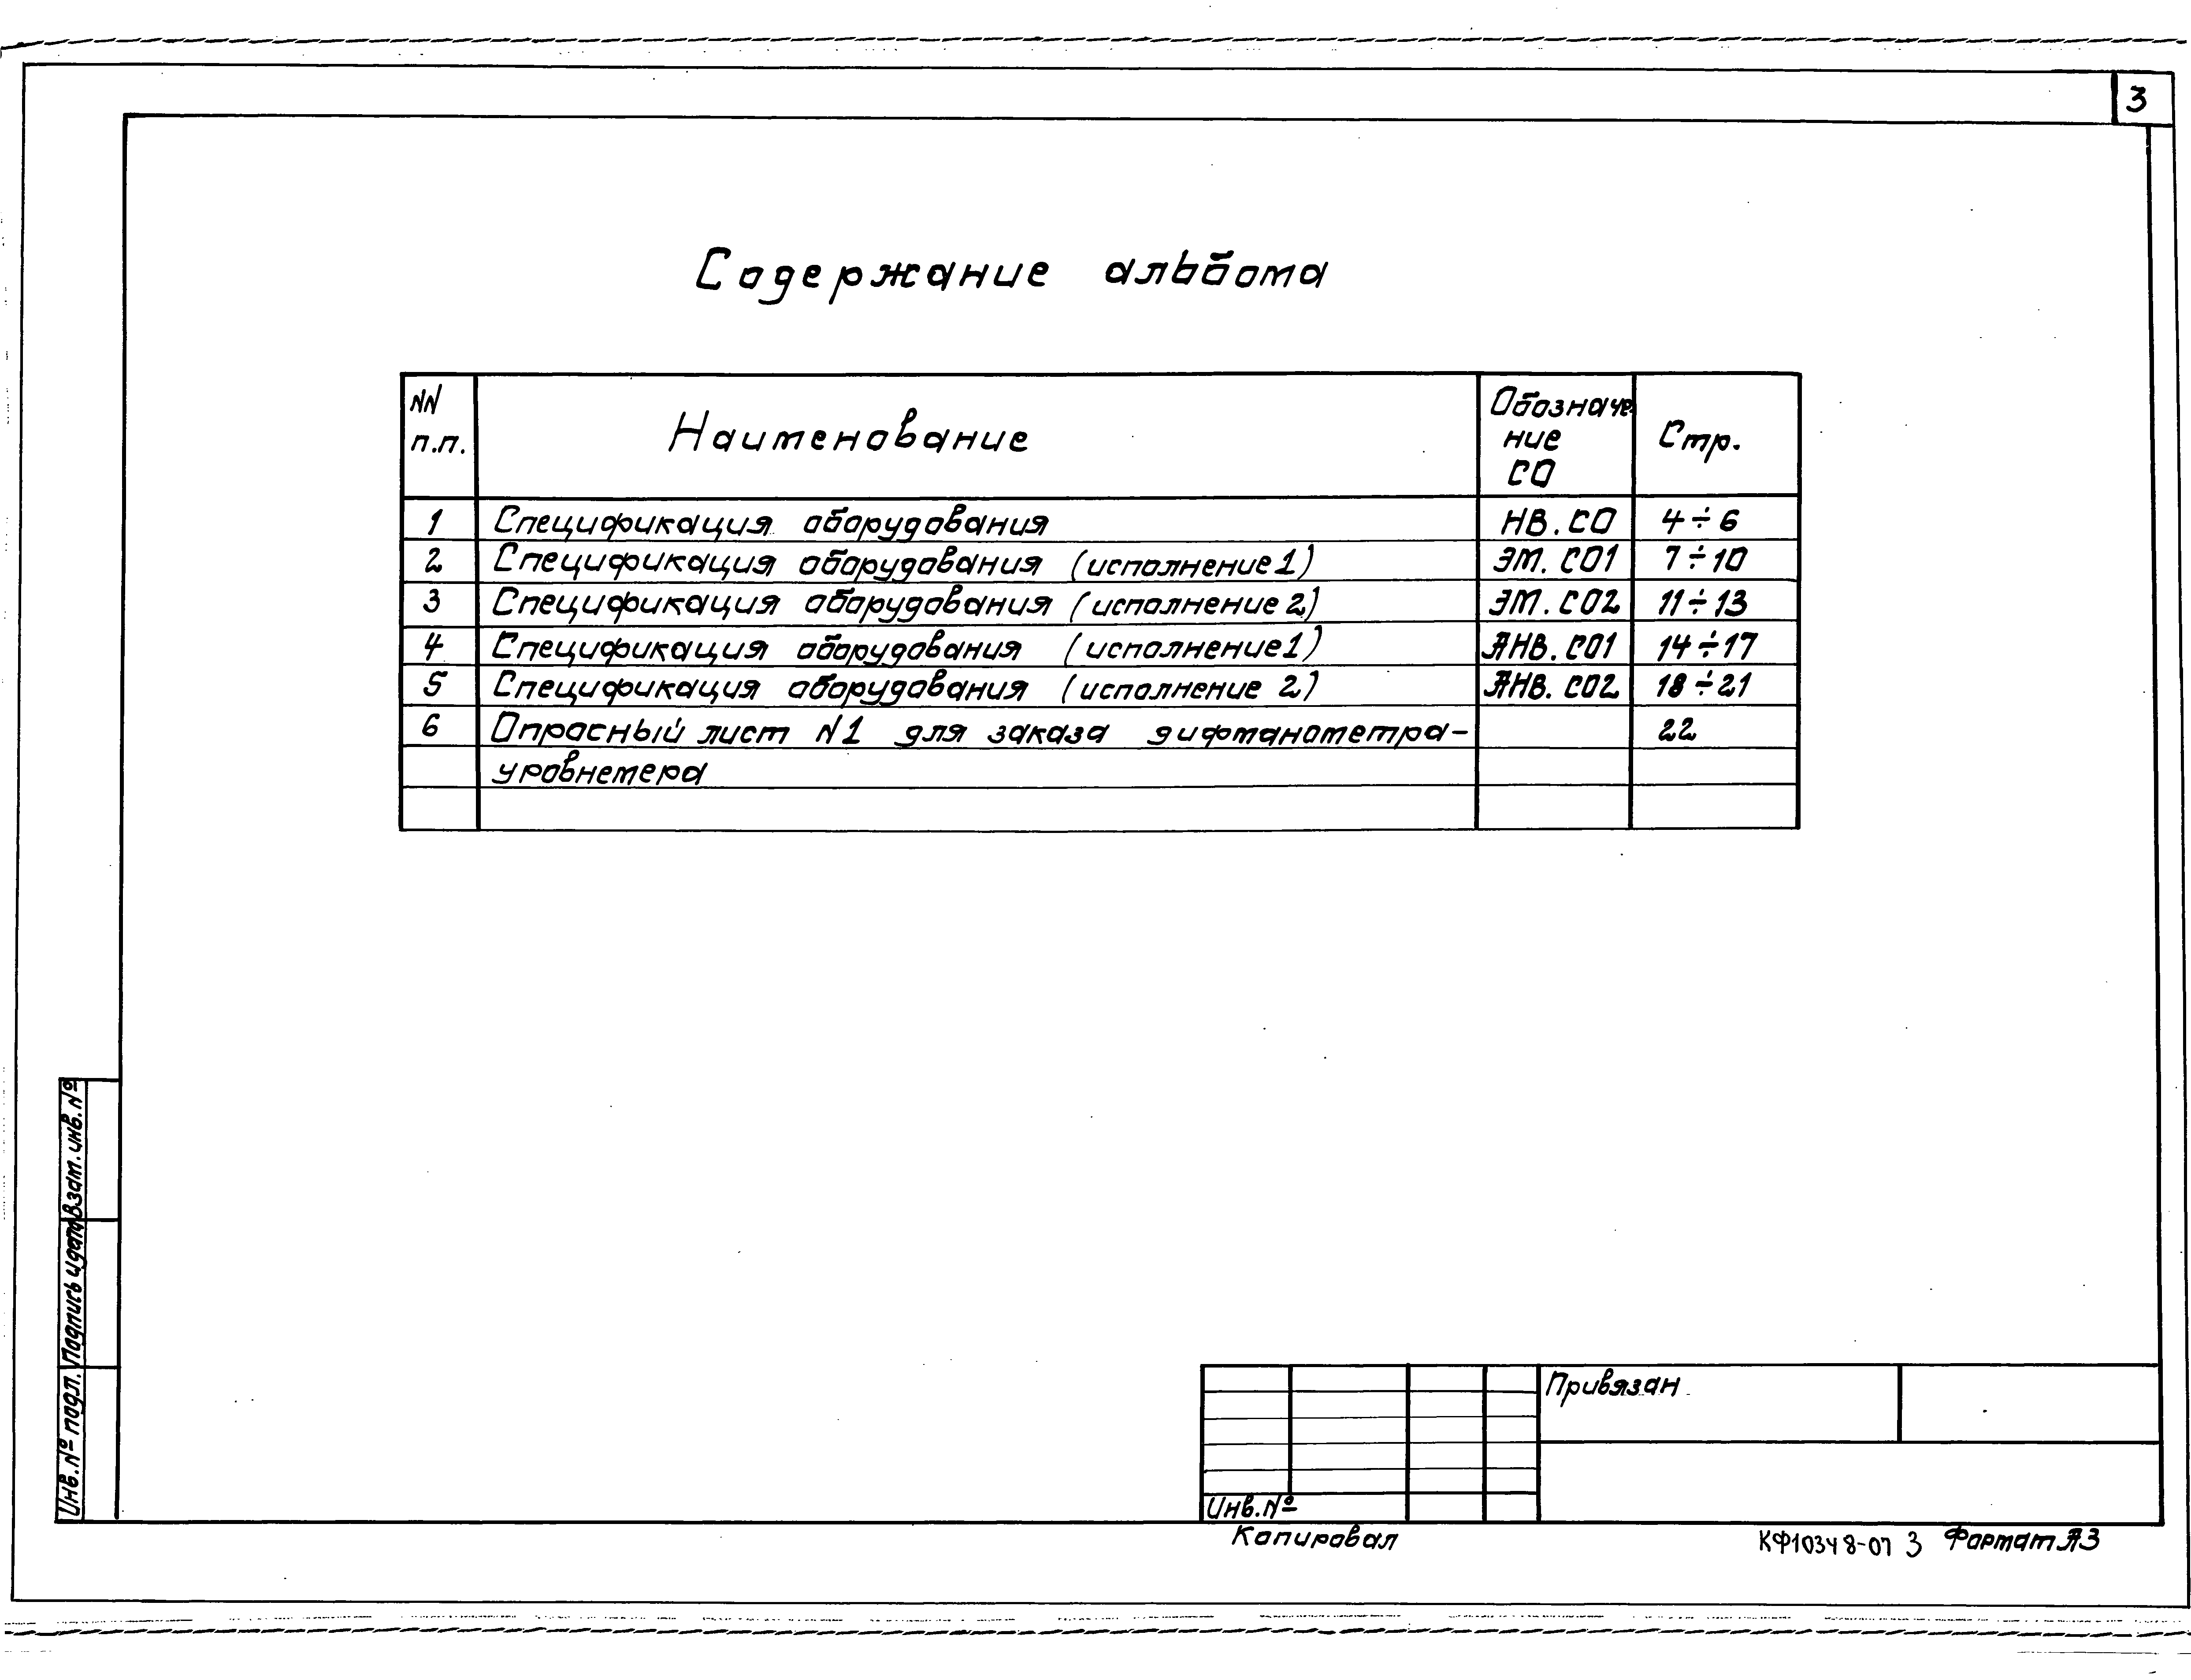 3
Содержание альбома
NN п.п. Наименование Обозначение СО Стр.
1 Спецификация оборудования НВ.СО 4÷6
2 Спецификация оборудования (исполнение 1) ЭМ.СО1 7÷10
3 Спецификация оборудования (исполнение 2) ЭМ.СО2 11÷13
4 Спецификация оборудования (исполнение 1) АНВ.СО1 14÷17
5 Спецификация оборудования (исполнение 2) АНВ.СО2 18÷21
6 Опросный лист N1 для заказа дифманометра- 22
уровнемера
Взам. инв. №
Подпись и дата
Инв. № подл.
Привязан
Инв. №
Копировал КФ10348-07 3 Формат А3